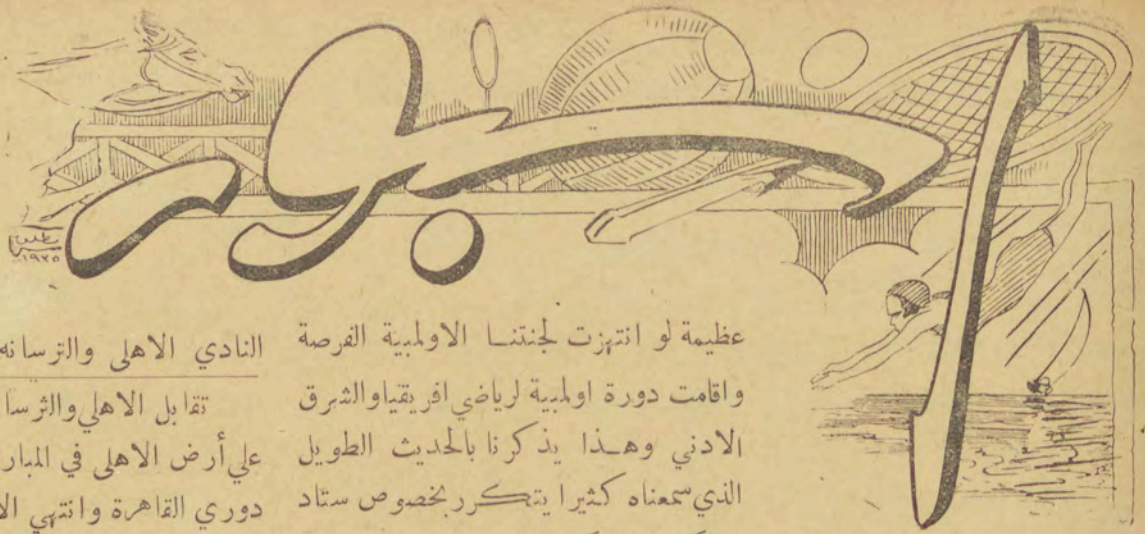 اسبور
١٩٢٥
عظيمة لو انتهزت لجنتنا الاولمبية الفرصة
واقامت دورة اولمبية لرياضي افريقيا والشرق
الادني وهذا يذكرنا بالحديث الطويل
الذي سمعناه كثيرا يتكرر بخصوص ستاد
النادي الاهلى والترسانه
تقابل الاهلي والترسا
علي أرض الاهلى في المبار
دوري القاهرة وانتهي الا